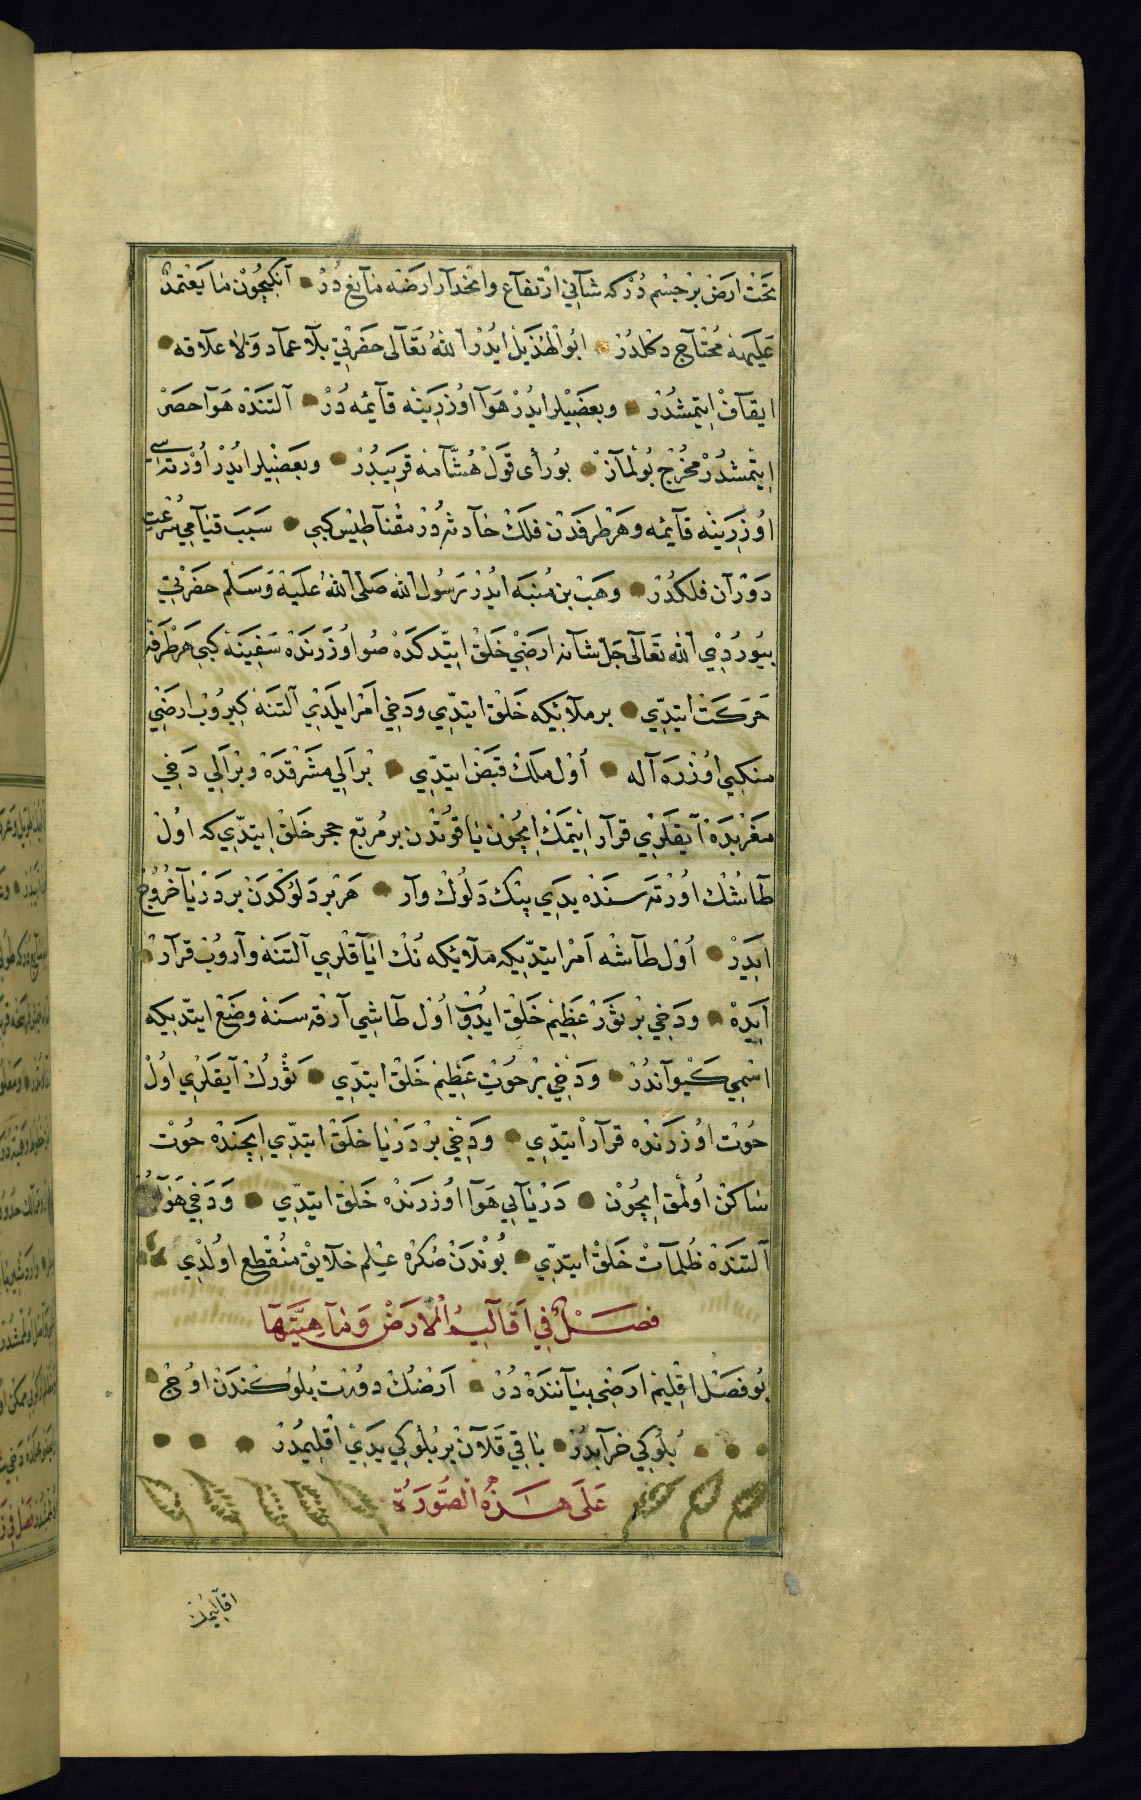 تحت ارض بر جسم درکه شانی ارتفاع وانحدار ارضه مانع در انکچون ما یعتمد
علیهنه محتاج دکلدر ابو الهذیل ایدر الله تعالی حضرتی بلا عماد ولا علاقه
ایقاف ایتمشدر وبعضیلر ایدر هوا اوزرینه قائمه در التنده هوا حصر
ایتمشدر مخرج بولماز بو رأی قول هشامه قریبدر وبعضیلر ایدر اورته سی
اوزرینه قائمه وهر طرفدن فلک جاذبه در مقناطیس کبی سبب قیامی سرعت
دوران فلکدر وهب بن منبه ایدر رسول الله صلی الله علیه وسلم حضرتی
بیوردی الله تعالی جل شانه ارضی خلق ایتدکده صو اوزرنده سفینه کبی هر طرفه
حرکت ایتدی بر ملائکه خلق ایتدی ودخی امر ایلدی التنه کیروب ارضی
منکبی اوزره اله اول ملک قبض ایتدی بر الی مشرقده وبر الی دخی
مغربده ایقلری قرار ایتمک ایچون یاقوتدن بر مربع حجر خلق ایتدی که اول
طاشک اورته سنده یدی بیک دلوک وار هر بر دلوکدن بر دریا خروج
ایدر اول طاشه امر ایتدیکه ملائکه نک ایاقلری التنه واروب قرار
ایده ودخی بر ثور عظیم خلق ایدوب اول طاشی آرقه سنه وضع ایتدیکه
اسمی کیواندر ودخی بر حوت عظیم خلق ایتدی ثورک ایقلری اول
حوت اوزرنده قرار ایتدی ودخی بر دریا خلق ایتدی ایچنده حوت
ساکن اولمق ایچون دریایی هوا اوزرنده خلق ایتدی ودخی هوا
التنده ظلمات خلق ایتدی بوندن صکره علم خلایق منقطع اولدی
فصل فی اقالیم الارض وماهیتها
بو فصل اقلیم ارضی بیاننده در ارضک دورت بلوکندن اوچ
بلوکی خرابدر باقی قلان بر بلوکی یدی اقلیمدر
علی هذه الصورة
اقالیمک